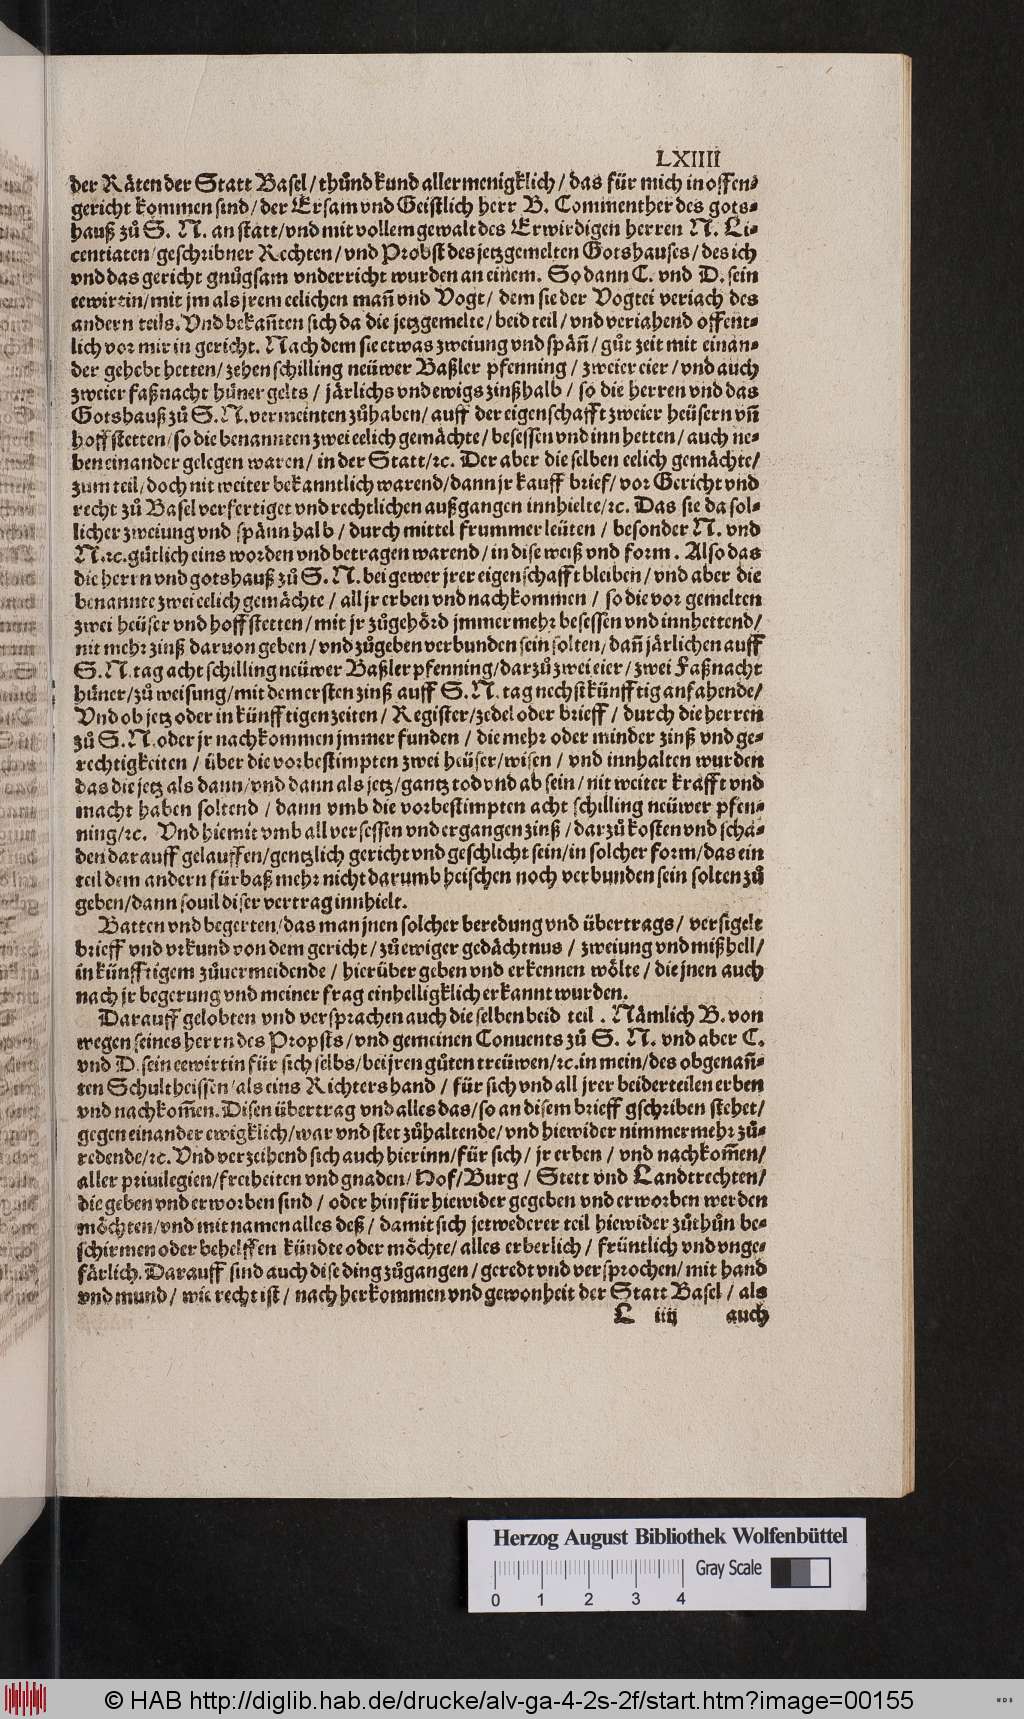 LXIIII
der Räten der Statt Basel / thůnd kund aller menigklich / das für mich in offen⸗
gericht kommen sind / der Ersam vnd Geistlich herr B. Commenther des gots⸗
hauß zů S. N. an statt / vnd mit vollem gewalt des Erwirdigen herren N. Li⸗
centiaten / geschribner Rechten / vnd Probst des jetzgemelten Gotshauses / des ich
vnd das gericht gnůgsam vnderricht wurden an einem. So dann C. vnd D. sein
eewirtin / mit jm als jrem eelichen mañ vnd Vogt / dem sie der Vogtei veriach des
andern teils. Vnd bekañten sich da die jetzgemelte / beid teil / vnd veriahend offent⸗
lich vor mir in gericht. Nach dem sie etwas zweiung vnd späñ / gůt zeit mit einan⸗
der gehebt hetten / zehen schilling neüwer Baßler pfenning / zweier eier / vnd auch
zweier faßnacht hüner gelts / järlichs vnd ewigs zinßhalb / so die herren vnd das
Gotshauß zů S. N. vermeinten zůhaben / auff der eigenschafft zweier heüsern vñ
hoffstetten / so die benannten zwei eelich gemächte / besessen vnd inn hetten / auch ne⸗
ben einander gelegen waren / in der Statt / ꝛc. Der aber die selben eelich gemächte /
zum teil / doch nit weiter bekanntlich warend / dann jr kauff brief / vor Gericht vnd
recht zů Basel verfertiget vnd rechtlichen außgangen innhielte / ꝛc. Das sie da sol⸗
licher zweiung vnd spänn halb / durch mittel frummer leüten / besonder N. vnd
N. ꝛc. gütlich eins worden vnd betragen warend / in dise weiß vnd form. Also das
die herrn vnd gotshauß zů S. N. bei gewer jrer eigenschafft bleiben / vnd aber die
benannte zwei eelich gemächte / all jr erben vnd nachkommen / so die vor gemelten
zwei heüser vnd hoffstetten / mit jr zůgehörd jmmer mehr besessen vnd innhettend /
nit mehr zinß daruon geben / vnd zůgeben verbunden sein solten / dañ järlichen auff
S. N. tag acht schilling neüwer Baßler pfenning / darzů zwei eier / zwei Faßnacht
hüner / zů weisung / mit dem ersten zinß auff S. N. tag nechst künfftig anfahende /
Vnd ob jetz oder in künfftigen zeiten / Register / zedel oder brieff / durch die herren
zů S. N. oder jr nachkommen jmmer funden / die mehr oder minder zinß vnd ge⸗
rechtigkeiten / über die vorbestimpten zwei heüser / wisen / vnd innhalten wurden
das die jetz als dann / vnd dann als jetz / gantz tod vnd ab sein / nit weiter krafft vnd
macht haben soltend / dann vmb die vorbestimpten acht schilling neüwer pfen⸗
ning / ꝛc. Vnd hiemit vmb all versessen vnd ergangen zinß / darzů kosten vnd schä⸗
den darauff gelauffen / gentzlich gericht vnd geschlicht sein / in solcher form / das ein
teil dem andern fürbaß mehr nicht darumb heischen noch verbunden sein solten zů
geben / dann souil diser vertrag innhielt.
Batten vnd begerten / das man jnen solcher beredung vnd übertrags / versigelt
brieff vnd vrkund von dem gericht / zů ewiger gedächtnus / zweiung vnd mißhell /
in künfftigem zůuermeidende / hierüber geben vnd erkennen wölte / die jnen auch
nach jr begerung vnd meiner frag einhelligklich erkannt wurden.
Darauff gelobten vnd versprachen auch die selben beid teil. Nämlich B. von
wegen seines herrn des Propsts / vnd gemeinen Conuents zů S. N. vnd aber C.
vnd D. sein eewirtin für sich selbs / bei jren gůten treüwen / ꝛc. in mein / des obgenañ⸗
ten Schultheissen / als eins Richters hand / für sich vnd all jrer beiderteilen erben
vnd nachkom̃en. Disen übertrag vnd alles das / so an disem brieff gschriben stehet /
gegen einander ewigklich / war vnd stet zůhaltende / vnd hiewider nimmer mehr zů⸗
redende / ꝛc. Vnd verzeihend sich auch hierinn / für sich / jr erben / vnd nachkom̃en /
aller priuilegien / freiheiten vnd gnaden / Hof / Burg / Stett vnd Landtrechten /
die geben vnd erworben sind / oder hinfür hiewider gegeben vnd erworben werden
möchten / vnd mit namen alles deß / damit sich jetwederer teil hiewider zůthůn be⸗
schirmen oder behelffen kündte oder möchte / alles erberlich / früntlich vnd vnge⸗
färlich. Darauff sind auch dise ding zůgangen / geredt vnd versprochen / mit hand
vnd mund / wie recht ist / nach herkommen vnd gewonheit der Statt Basel / als
L iiij auch
Herzog August Bibliothek Wolfenbüttel
Gray Scale
0 1 2 3 4
© HAB http://diglib.hab.de/drucke/alv-ga-4-2s-2f/start.htm?image=00155